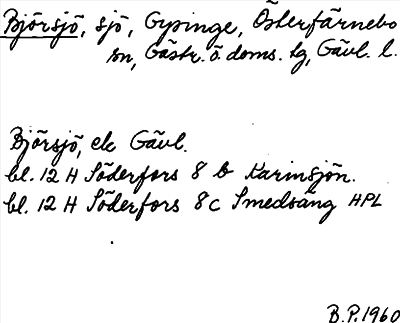 Björsjö, sjö, Gysinge, Österfärnebo
sn, Gästr. ö. doms. tg, Gävl. l.
Björsjö, ek Gävl.
bl. 12 H Söderfors 8 b Karinsjön.
bl. 12 H Söderfors 8c Smedsäng HPL
B.P. 1960